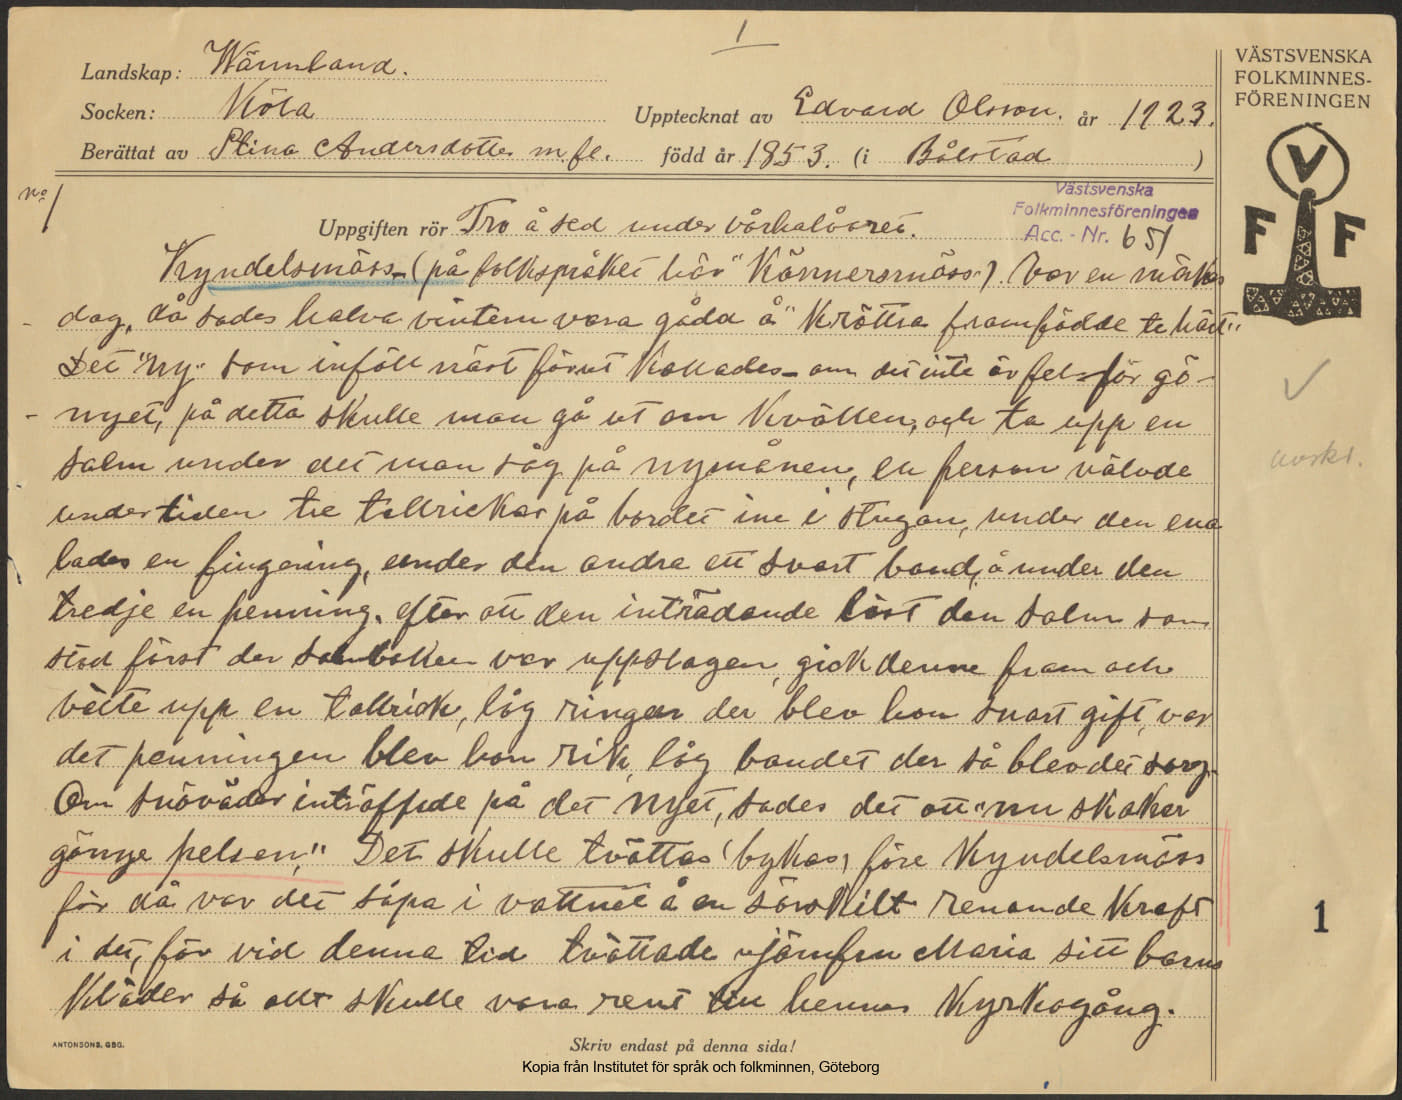 1
Landskap: Wärmland.
Socken: Köla
Upptecknat av Edvard Olsson. år 1923.
Berättat av Stina Andersdotter m fl. född år 1853. (i Bålstad )
No 1
Uppgiften rör Tro å sed under vårhalvåret.
Västsvenska
Folkminnesföreningen
Acc. - Nr. 651
Kyndelsmäss (på folkspråket här "Könnersmäss"). Var en märkes
dag, då sades halva vintern vara gådd å "Kröttra framfödde te hälft"
Det "ny" som inföll näst förut kallades – om det inte är fel – för gö-
nyet, på detta skulle man gå ut om kvällen, och ta upp en
salm under det man såg på nymånen, en person välvde
undertiden tre tallrickar på bordet inne i stugan, under den ena
lades en fingering, under den andra ett svart band, å under den
tredje en penning. efter att den inträdande läst den salm som
stod först der salmboken var uppslagen, gick denne fram och
välte upp en tallrick, låg ringen der blev hon snart gift, var
det penningen blev hon rik, låg bandet der så blev det sorg.
Om snöväder inträffade på det nyet, sades det att "nu skaker
gömye pelsen," Det skulle tvättas (bykas) före Kyndelsmäss
för då var det såpa i vattnet å en särskilt renande kraft
i det, för vid denna tid tvättade "jömfru Maria sitt barns
kläder så allt skulle vara rent till hennes kyrkogång.
ANTONSONS, GBG.
Skriv endast på denna sida!
Kopia från Institutet för språk och folkminnen, Göteborg
VÄSTSVENSKA
FOLKMINNES-
FÖRENINGEN
V
F F
avskr.
1